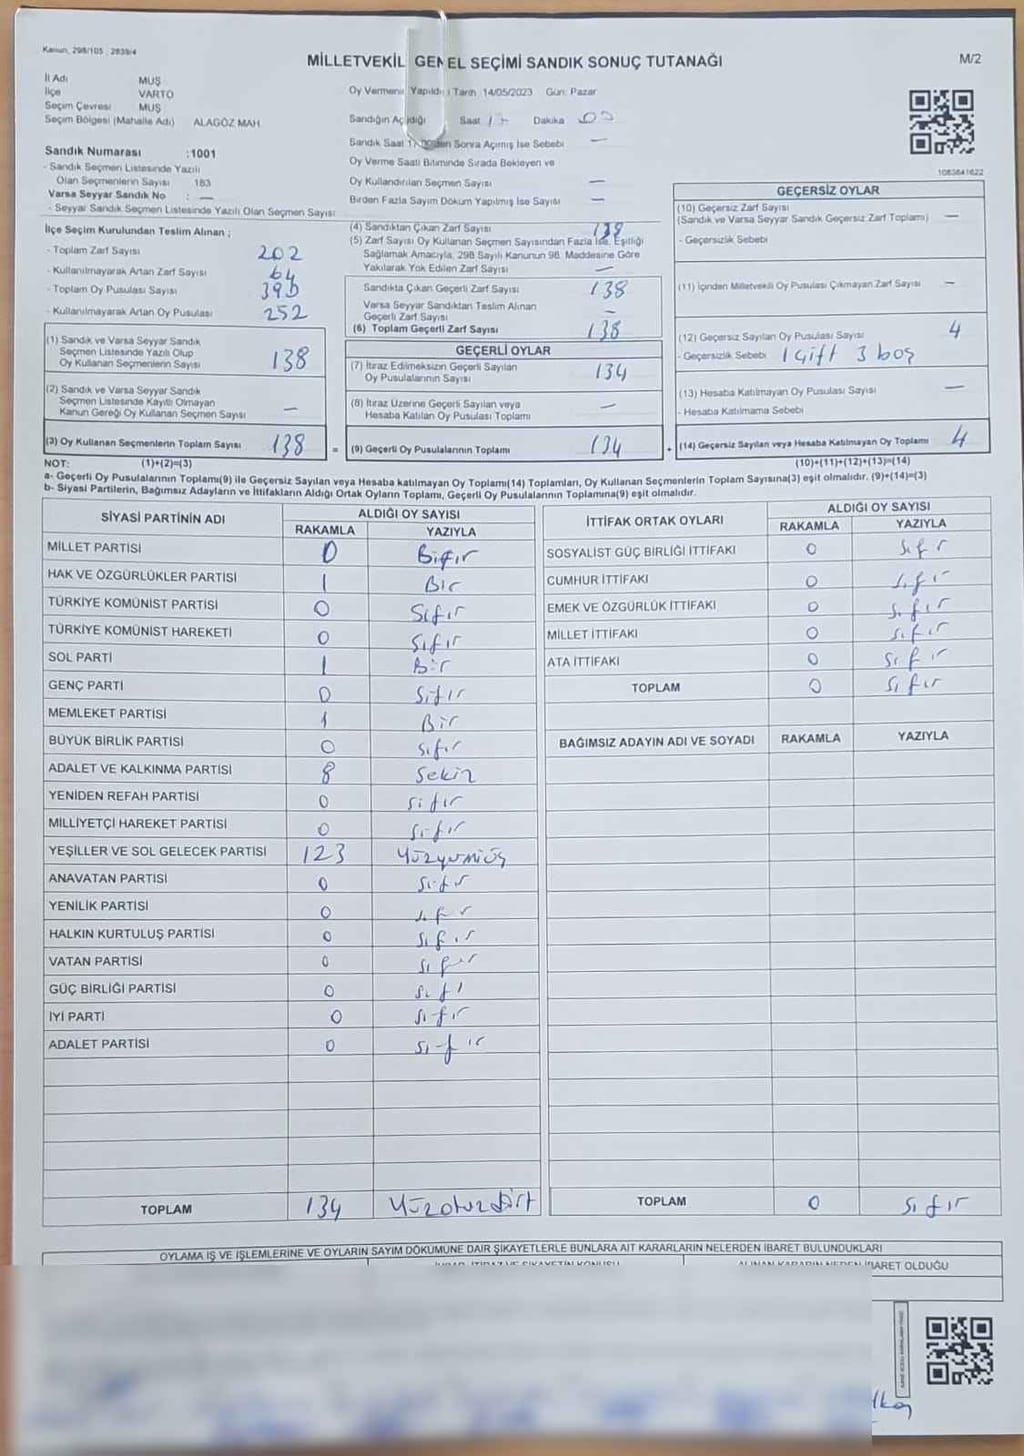 Kanun, 298/105 , 2839/4
MİLLETVEKİL GENEL SEÇİMİ SANDIK SONUÇ TUTANAĞI
M/2
İl Adı MUŞ
İlçe VARTO
Seçim Çevresi MUŞ
Seçim Bölgesi (Mahalle Adı) ALAGÖZ MAH.
Oy Vermenin Yapıldığı Tarih 14/05/2023 Gün: Pazar
Sandığın Açıldığı Saat 17 Dakika 00
Sandık Saat Sonra Açımış İse Sebebi —
Oy Verme Saati Bitiminde Sırada Bekleyen ve
Oy Kullandırılan Seçmen Sayısı —
Birden Fazla Sayım Döküm Yapılmış İse Sayısı —
Sandık Numarası :1001
- Sandık Seçmen Listesinde Yazılı
Olan Seçmenlerin Sayısı 183
Varsa Seyyar Sandık No : —
- Seyyar Sandık Seçmen Listesinde Yazılı Olan Seçmen Sayısı
1083641622
İlçe Seçim Kurulundan Teslim Alınan ;
- Toplam Zarf Sayısı 202
- Kullanılmayarak Artan Zarf Sayısı 64
- Toplam Oy Pusulası Sayısı 390
- Kullanılmayarak Artan Oy Pusulası 252
(1) Sandık ve Varsa Seyyar Sandık
Seçmen Listesinde Yazılı Olup
Oy Kullanan Seçmenlerin Sayısı 138
(2) Sandık ve Varsa Seyyar Sandık
Seçmen Listesinde Kayıtlı Olmayan
Kanun Gereği Oy Kullanan Seçmen Sayısı —
(3) Oy Kullanan Seçmenlerin Toplam Sayısı 138
(4) Sandıktan Çıkan Zarf Sayısı 138
(5) Zarf Sayısı Oy Kullanan Seçmen Sayısından Fazla İse, Eşitliği
Sağlamak Amacıyla, 298 Sayılı Kanunun 98. Maddesine Göre
Yakılarak Yok Edilen Zarf Sayısı —
Sandıkta Çıkan Geçerli Zarf Sayısı 138
Varsa Seyyar Sandıktan Teslim Alınan
Geçerli Zarf Sayısı —
(6) Toplam Geçerli Zarf Sayısı 138
GEÇERLİ OYLAR
(7) İtiraz Edilmeksizin Geçerli Sayılan
Oy Pusulalarının Sayısı 134
(8) İtiraz Üzerine Geçerli Sayılan veya
Hesaba Katılan Oy Pusulası Toplamı —
= (9) Geçerli Oy Pusulalarının Toplamı 134
GEÇERSİZ OYLAR
(10) Geçersiz Zarf Sayısı
(Sandık ve Varsa Seyyar Sandık Geçersiz Zarf Toplamı) —
- Geçersizlik Sebebi
(11) İçinden Milletvekili Oy Pusulası Çıkmayan Zarf Sayısı —
(12) Geçersiz Sayılan Oy Pusulası Sayısı 4
- Geçersizlik Sebebi 1 Çift 3 boş
(13) Hesaba Katılmayan Oy Pusulası Sayısı —
- Hesaba Katılmama Sebebi
+ (14) Geçersiz Sayılan veya Hesaba Katılmayan Oy Toplamı 4
NOT: (1)+(2)=(3) (10)+(11)+(12)+(13)=(14)
a- Geçerli Oy Pusulalarının Toplamı(9) ile Geçersiz Sayılan veya Hesaba katılmayan Oy Toplamı(14) Toplamları, Oy Kullanan Seçmenlerin Toplam Sayısına(3) eşit olmalıdır. (9)+(14)=(3)
b- Siyasi Partilerin, Bağımsız Adayların ve İttifakların Aldığı Ortak Oyların Toplamı, Geçerli Oy Pusulalarının Toplamına(9) eşit olmalıdır.
SİYASİ PARTİNİN ADI ALDIĞI OY SAYISI
RAKAMLA YAZIYLA
MİLLET PARTİSİ 0 Sıfır
HAK VE ÖZGÜRLÜKLER PARTİSİ 1 Bir
TÜRKİYE KOMÜNİST PARTİSİ 0 Sıfır
TÜRKİYE KOMÜNİST HAREKETİ 0 Sıfır
SOL PARTİ 1 Bir
GENÇ PARTİ 0 Sıfır
MEMLEKET PARTİSİ 1 Bir
BÜYÜK BİRLİK PARTİSİ 0 Sıfır
ADALET VE KALKINMA PARTİSİ 8 Sekiz
YENİDEN REFAH PARTİSİ 0 Sıfır
MİLLİYETÇİ HAREKET PARTİSİ 0 Sıfır
YEŞİLLER VE SOL GELECEK PARTİSİ 123 Yüzyirmiüç
ANAVATAN PARTİSİ 0 Sıfır
YENİLİK PARTİSİ 0 Sıfır
HALKIN KURTULUŞ PARTİSİ 0 Sıfır
VATAN PARTİSİ 0 Sıfır
GÜÇ BİRLİĞİ PARTİSİ 0 Sıfı
İYİ PARTİ 0 Sıfır
ADALET PARTİSİ 0 Sıfır
TOPLAM 134 Yüzotuzdört
İTTİFAK ORTAK OYLARI ALDIĞI OY SAYISI
RAKAMLA YAZIYLA
SOSYALİST GÜÇ BİRLİĞİ İTTİFAKI 0 Sıfır
CUMHUR İTTİFAKI 0 Sıfır
EMEK VE ÖZGÜRLÜK İTTİFAKI 0 Sıfır
MİLLET İTTİFAKI 0 Sıfır
ATA İTTİFAKI 0 Sıfır
TOPLAM 0 Sıfır
BAĞIMSIZ ADAYIN ADI VE SOYADI RAKAMLA YAZIYLA
TOPLAM 0 Sıfır
OYLAMA İŞ VE İŞLEMLERİNE VE OYLARIN SAYIM DÖKÜMÜNE DAİR ŞİKAYETLERLE BUNLARA AİT KARARLARIN NELERDEN İBARET BULUNDUKLARI
İBARET OLDUĞU